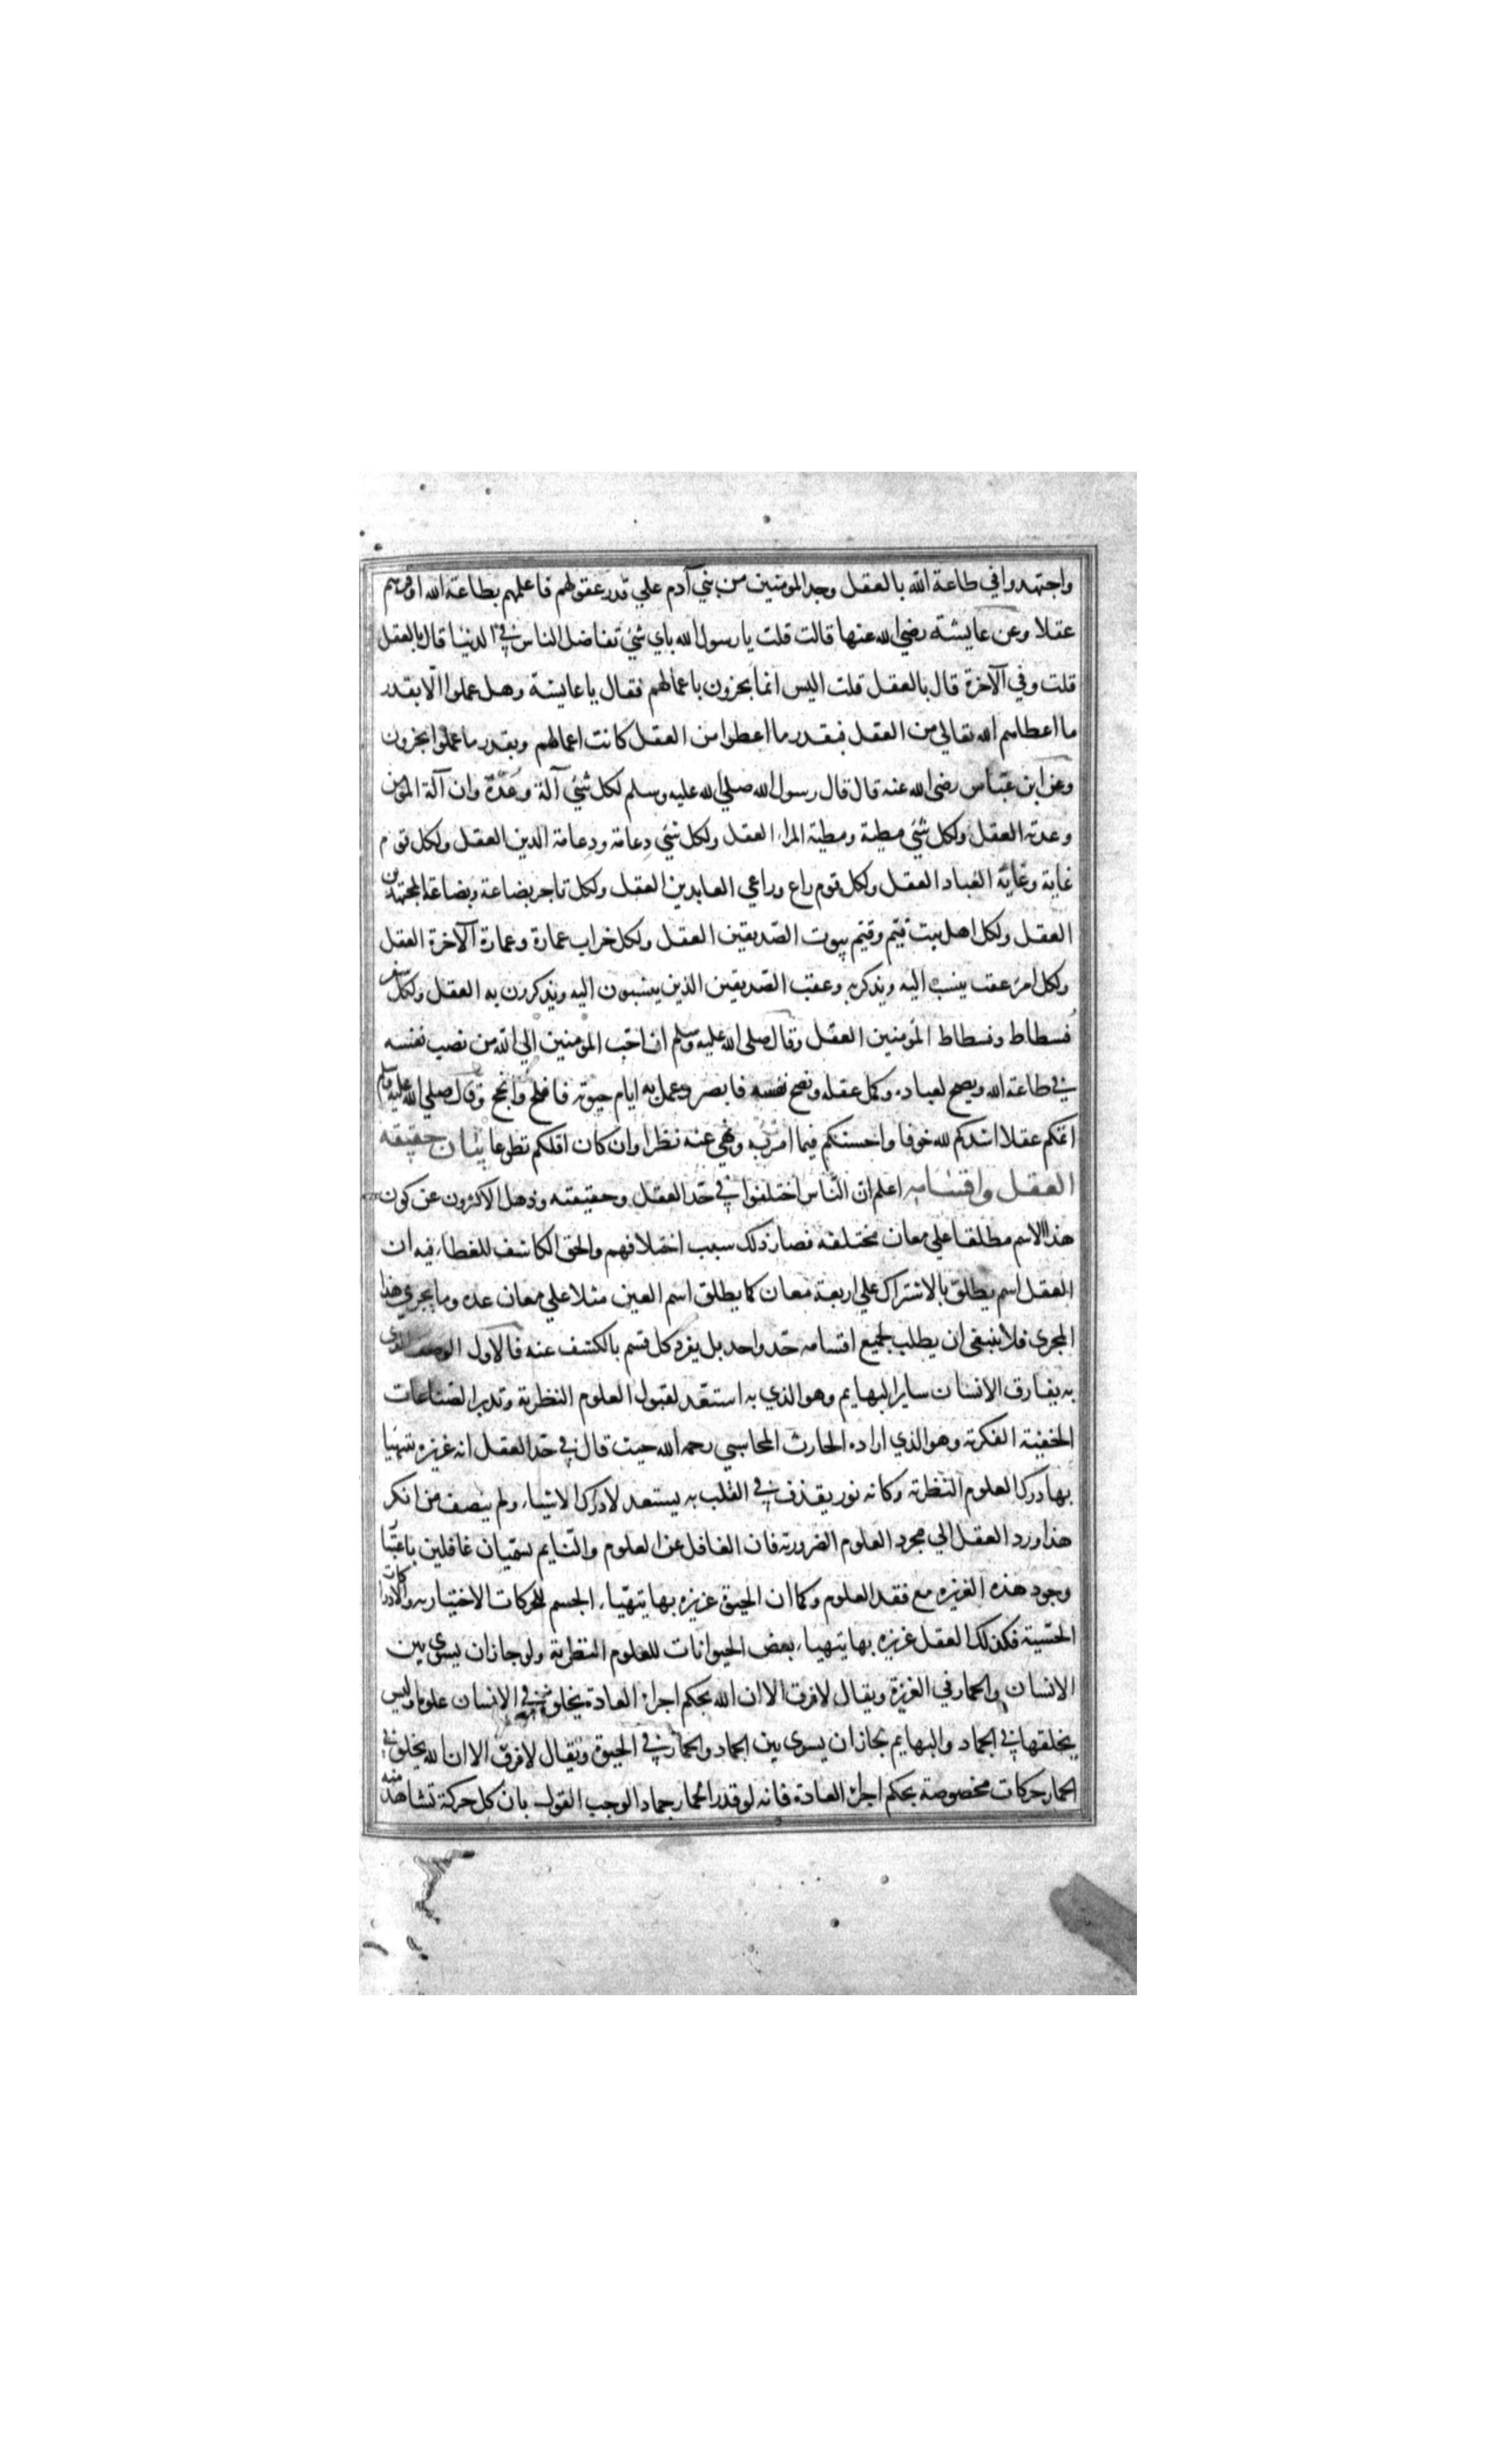 واجتهدوا في طاعة الله بالعقل وجد المومنين من بني آدم علي قدر عقولهم فاعلمهم بطاعة الله اوفرهم
عقلا وعن عايشة رضي الله عنها قالت قلت يا رسول الله باي شئ تفاضل الناس في الدنيا قال بالعقل
قلت وفي الآخرة قال بالعقل قلت اليس انما يجزون باعمالهم فقال يا عايشة وهل عملوا الا بقدر
ما اعطاهم الله تعالي من العقل فبقدر ما اعطوا من العقل كانت اعمالهم وبقدر ما عملوا يجزون
وعن ابن عباس رضي الله عنه قال قال رسول الله صلي الله عليه وسلم لكل شئ آلة وعدة وان آلة المؤمن
وعدته العقل ولكل شئ مطية ومطية المراء العقل ولكل شئ دعامة ودعامة الدين العقل ولكل قوم
غاية وغاية العباد العقل ولكل قوم راع وراعي العابدين العقل ولكل تاجر بضاعة وبضاعة المجتهدين
العقل ولكل اهل بيت قيم وقيم بيوت الصديقين العقل ولكل خراب عمارة وعمارة الآخرة العقل
ولكل امرئ عقب ينسب اليه ويذكر به وعقب الصديقين الذين ينسبون اليه ويذكرون به العقل ولكل سفر
فسطاط وفسطاط المؤمنين العقل وقال صلي الله عليه وسلم ان احب المؤمنين الي الله من نصب نفسه
في طاعة الله ونصح لعباده وكمل عقله ونصح نفسه فابصر وعمل به ايام حيوته فافلح وانجح وقال صلي الله عليه وسلم
اتمكم عقلا اشدكم لله خوفا واحسنكم فيما امر به ونهي عنه نظرا وان كان اقلكم تطوعا بيان حقيقه
العقل واقسامه اعلم ان الناس اختلفوا في حد العقل وحقيقته وذهل الاكثرون عن كون
هذا الاسم مطلقا علي معان مختلفة فصار ذلك سبب اختلافهم والحق الكاشف للغطاء فيه ان
العقل اسم يطلق بالاشتراك علي اربعة معان كما يطلق اسم العين مثلا علي معان عده وما يجري هذا
المجري فلا ينبغي ان يطلب لجميع اقسامه حد واحد بل يفرد كل قسم بالكشف عنه فالاول الوصف الذي
به يفارق الانسان ساير البهايم وهو الذي به استعد لقبول العلوم النظرية وتدبر الصناعات
الخفية الفكرية وهو الذي اراده الحارث المحاسبي رحمه الله حيث قال في حد العقل انه غريزه يتهيا
بها درك العلوم النظرية وكانه نور يقذف في القلب به يستعد لادراك الاشياء ولم ينصف من انكر
هذا ورد العقل الي مجرد العلوم الضرورية فان الغافل عن العلوم والنايم يسميان غافلين باعتبار
وجود هذه الغريزه مع فقد العلوم وكما ان الحيوة غريزه بها يتهياء الجسم للحركات الاختياريه والادراكات
الحسية فكذلك العقل غريزه بها يتهياء بعض الحيوانات للعلوم النظرية ولو جاز ان يسوي بين
الانسان والحمار في الغريزة ويقال لا فرق الا ان الله بحكم اجراء العادة يخلق في الانسان علوما وليس
يخلقها في الجماد والبهايم لجاز ان يسوي بين الجماد والحمار في الحيوة ويقال لا فرق الا ان الله يخلق في
الحمار حركات مخصوصة بحكم اجراء العادة فانه لو قدر الحمار جمادا لوجب القول بان كل حركة تشاهد منه